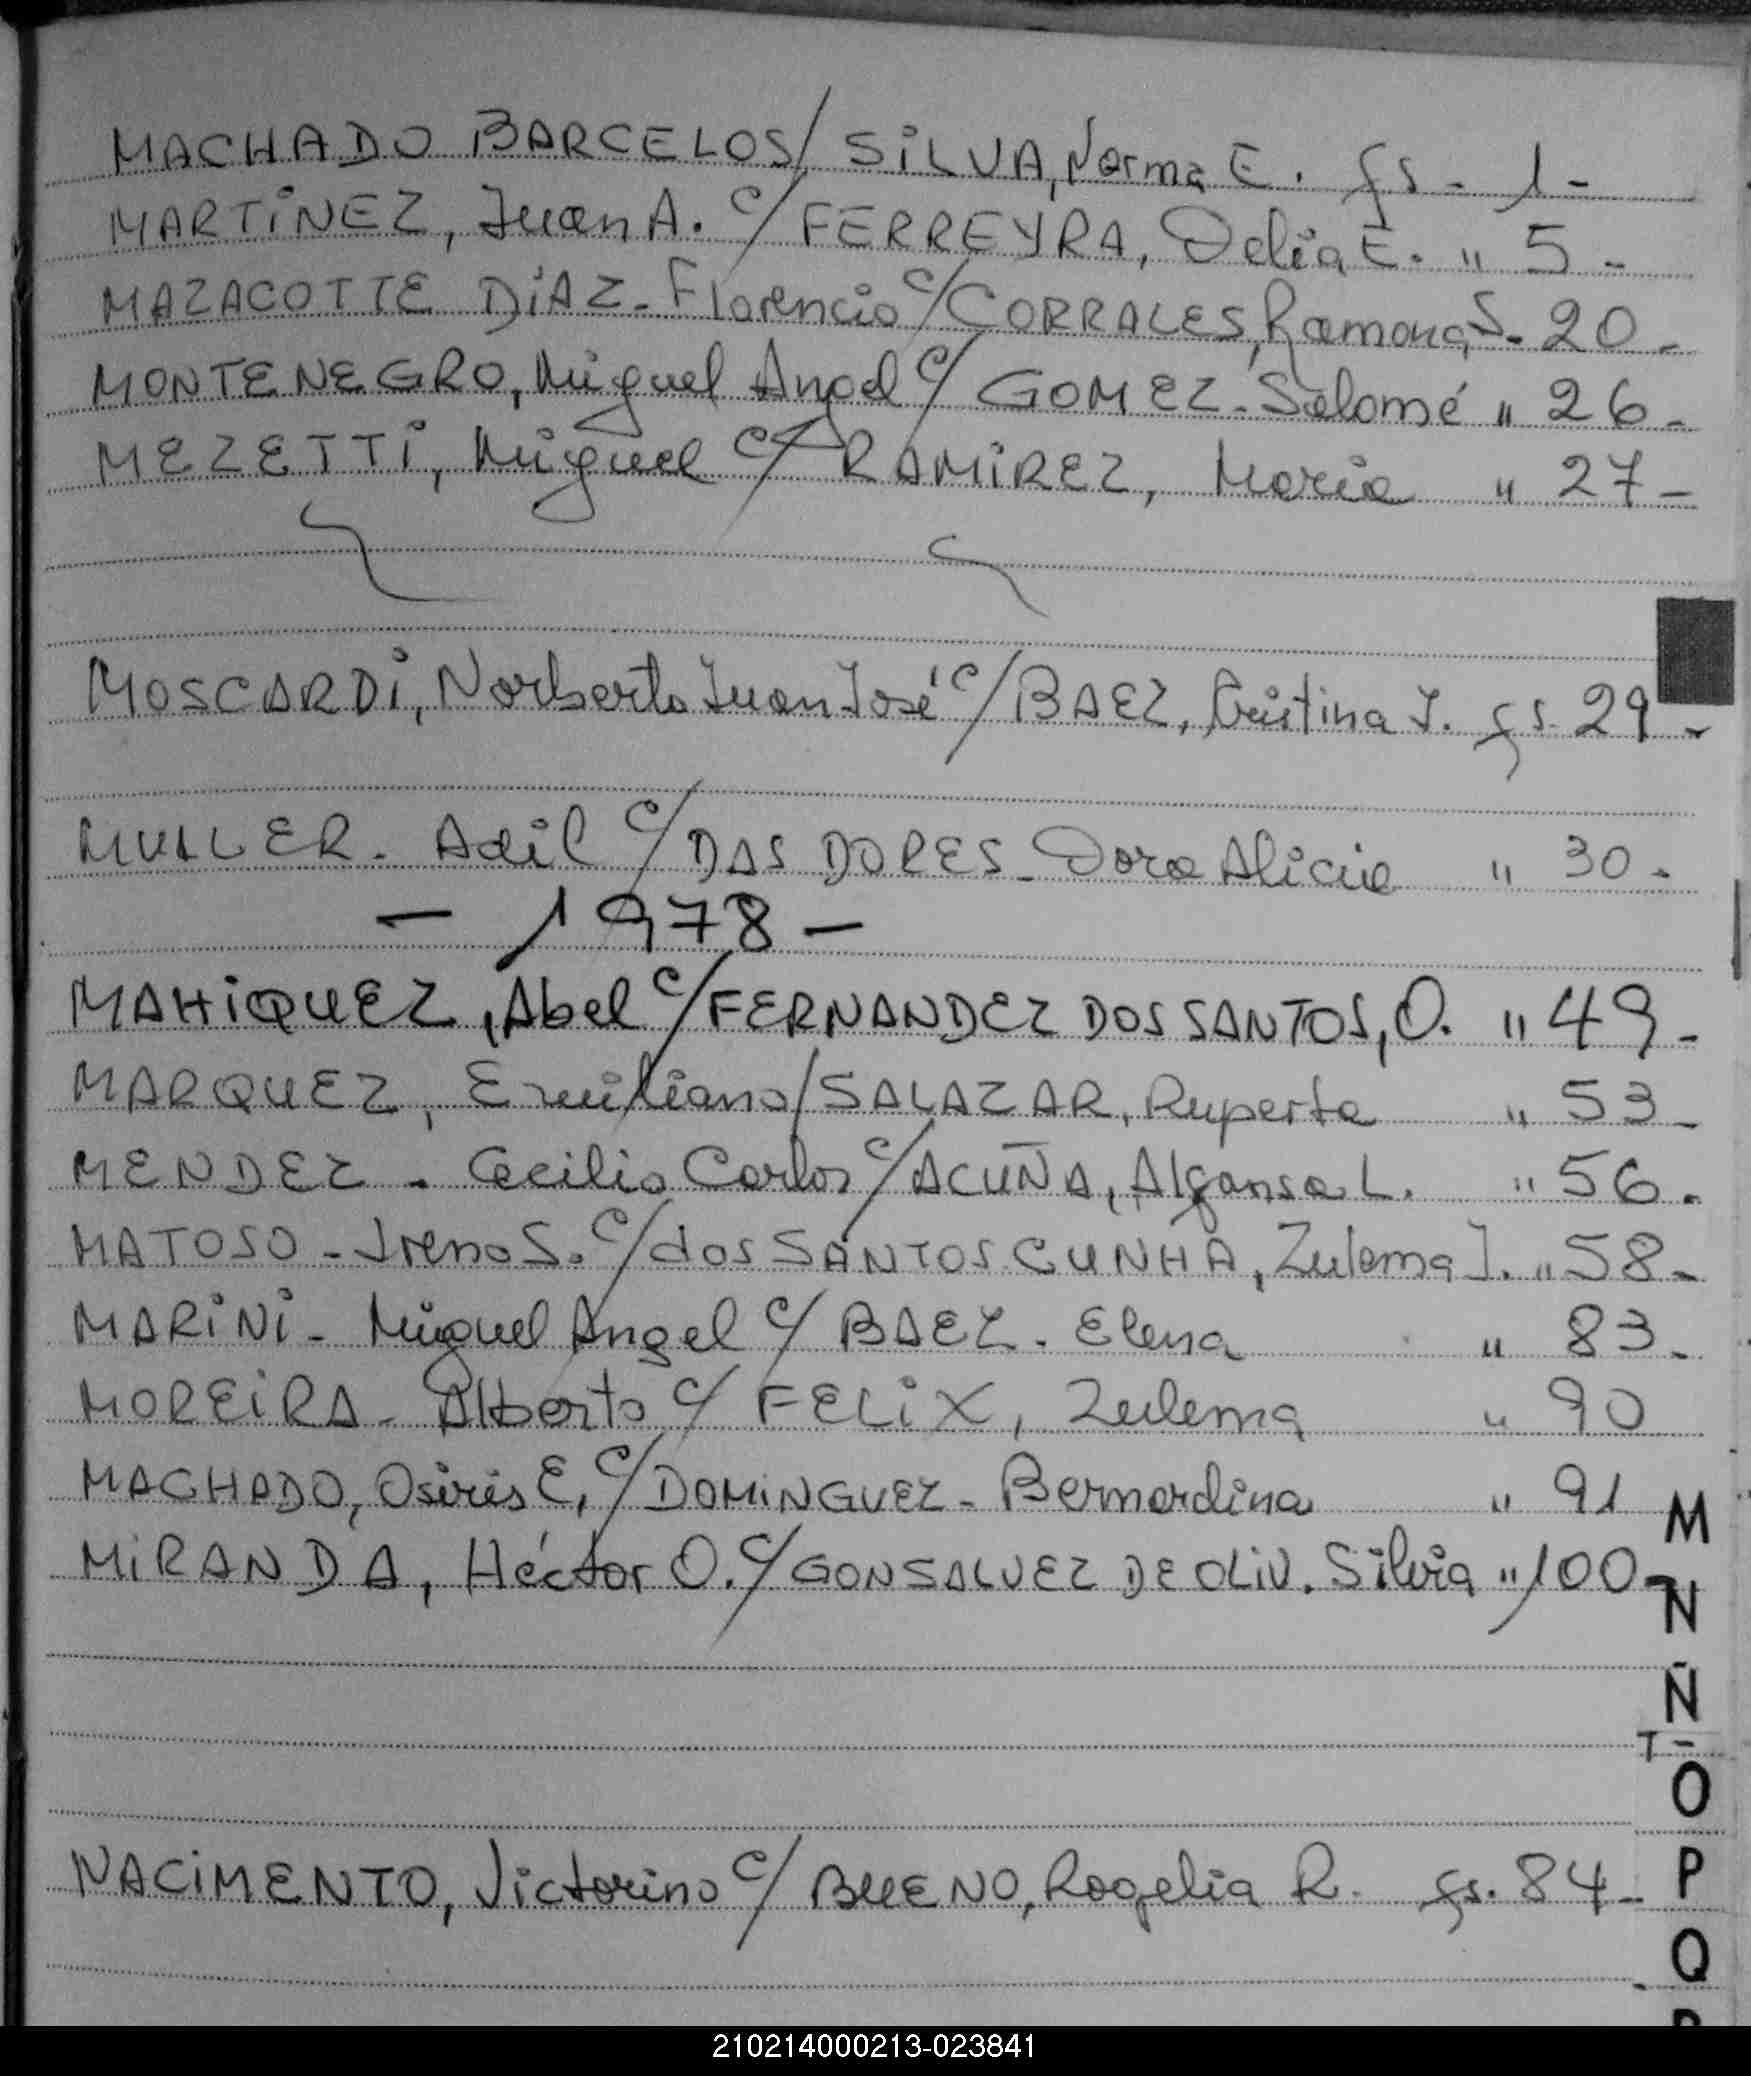 MACHADO BARCELOS/ SiLVA, Norma E. fs - 1 -
MARTiNEZ, Juan A. c/ FERREYRA, Delia E. " 5 -
MAZACOTTE DiAZ - Florencio c/ CORRALES, Ramona S - 20 -
MONTENEGRO, Miguel Angel c/ GOMEZ - Salomé " 26 -
MEZETTi, Miguel c/ RAMiREZ, Maria " 27 -
MOSCARDi, Norberto Juan José c/ BAEZ, Cristina J. fs. 29 -
MULLER - Adil c/ DAS DORES - Dora Alicia " 30 -
- 1978 -
MAHiQUEZ, Abel c/ FERNANDEZ DOS SANTOS, O. " 49 -
MARQUEZ, Emiliano/ SALAZAR, Ruperta " 53 -
MENDEZ - Cecilio Carlos c/ ACUÑA, Alfonsa L. " 56 -
MATOSO - Ireno S. c/ dos SANTOS CUNHA, Zulema J. " 58 -
MARiNi - Miguel Angel c/ BAEZ - Elena " 83 -
MOREiRA - Alberto c/ FELiX, Zulema " 90
MACHADO, Osiris E, c/ DOMiNGUEZ - Bernardina " 91
M
MiRANDA, Héctor O. c/ GONSALVEZ DE OLiV. Silvia " 100 -
N
Ñ
O
P
NACiMENTO, Victorino c/ BUENO, Rogelia R. fs. 84 -
Q
210214000213-023841